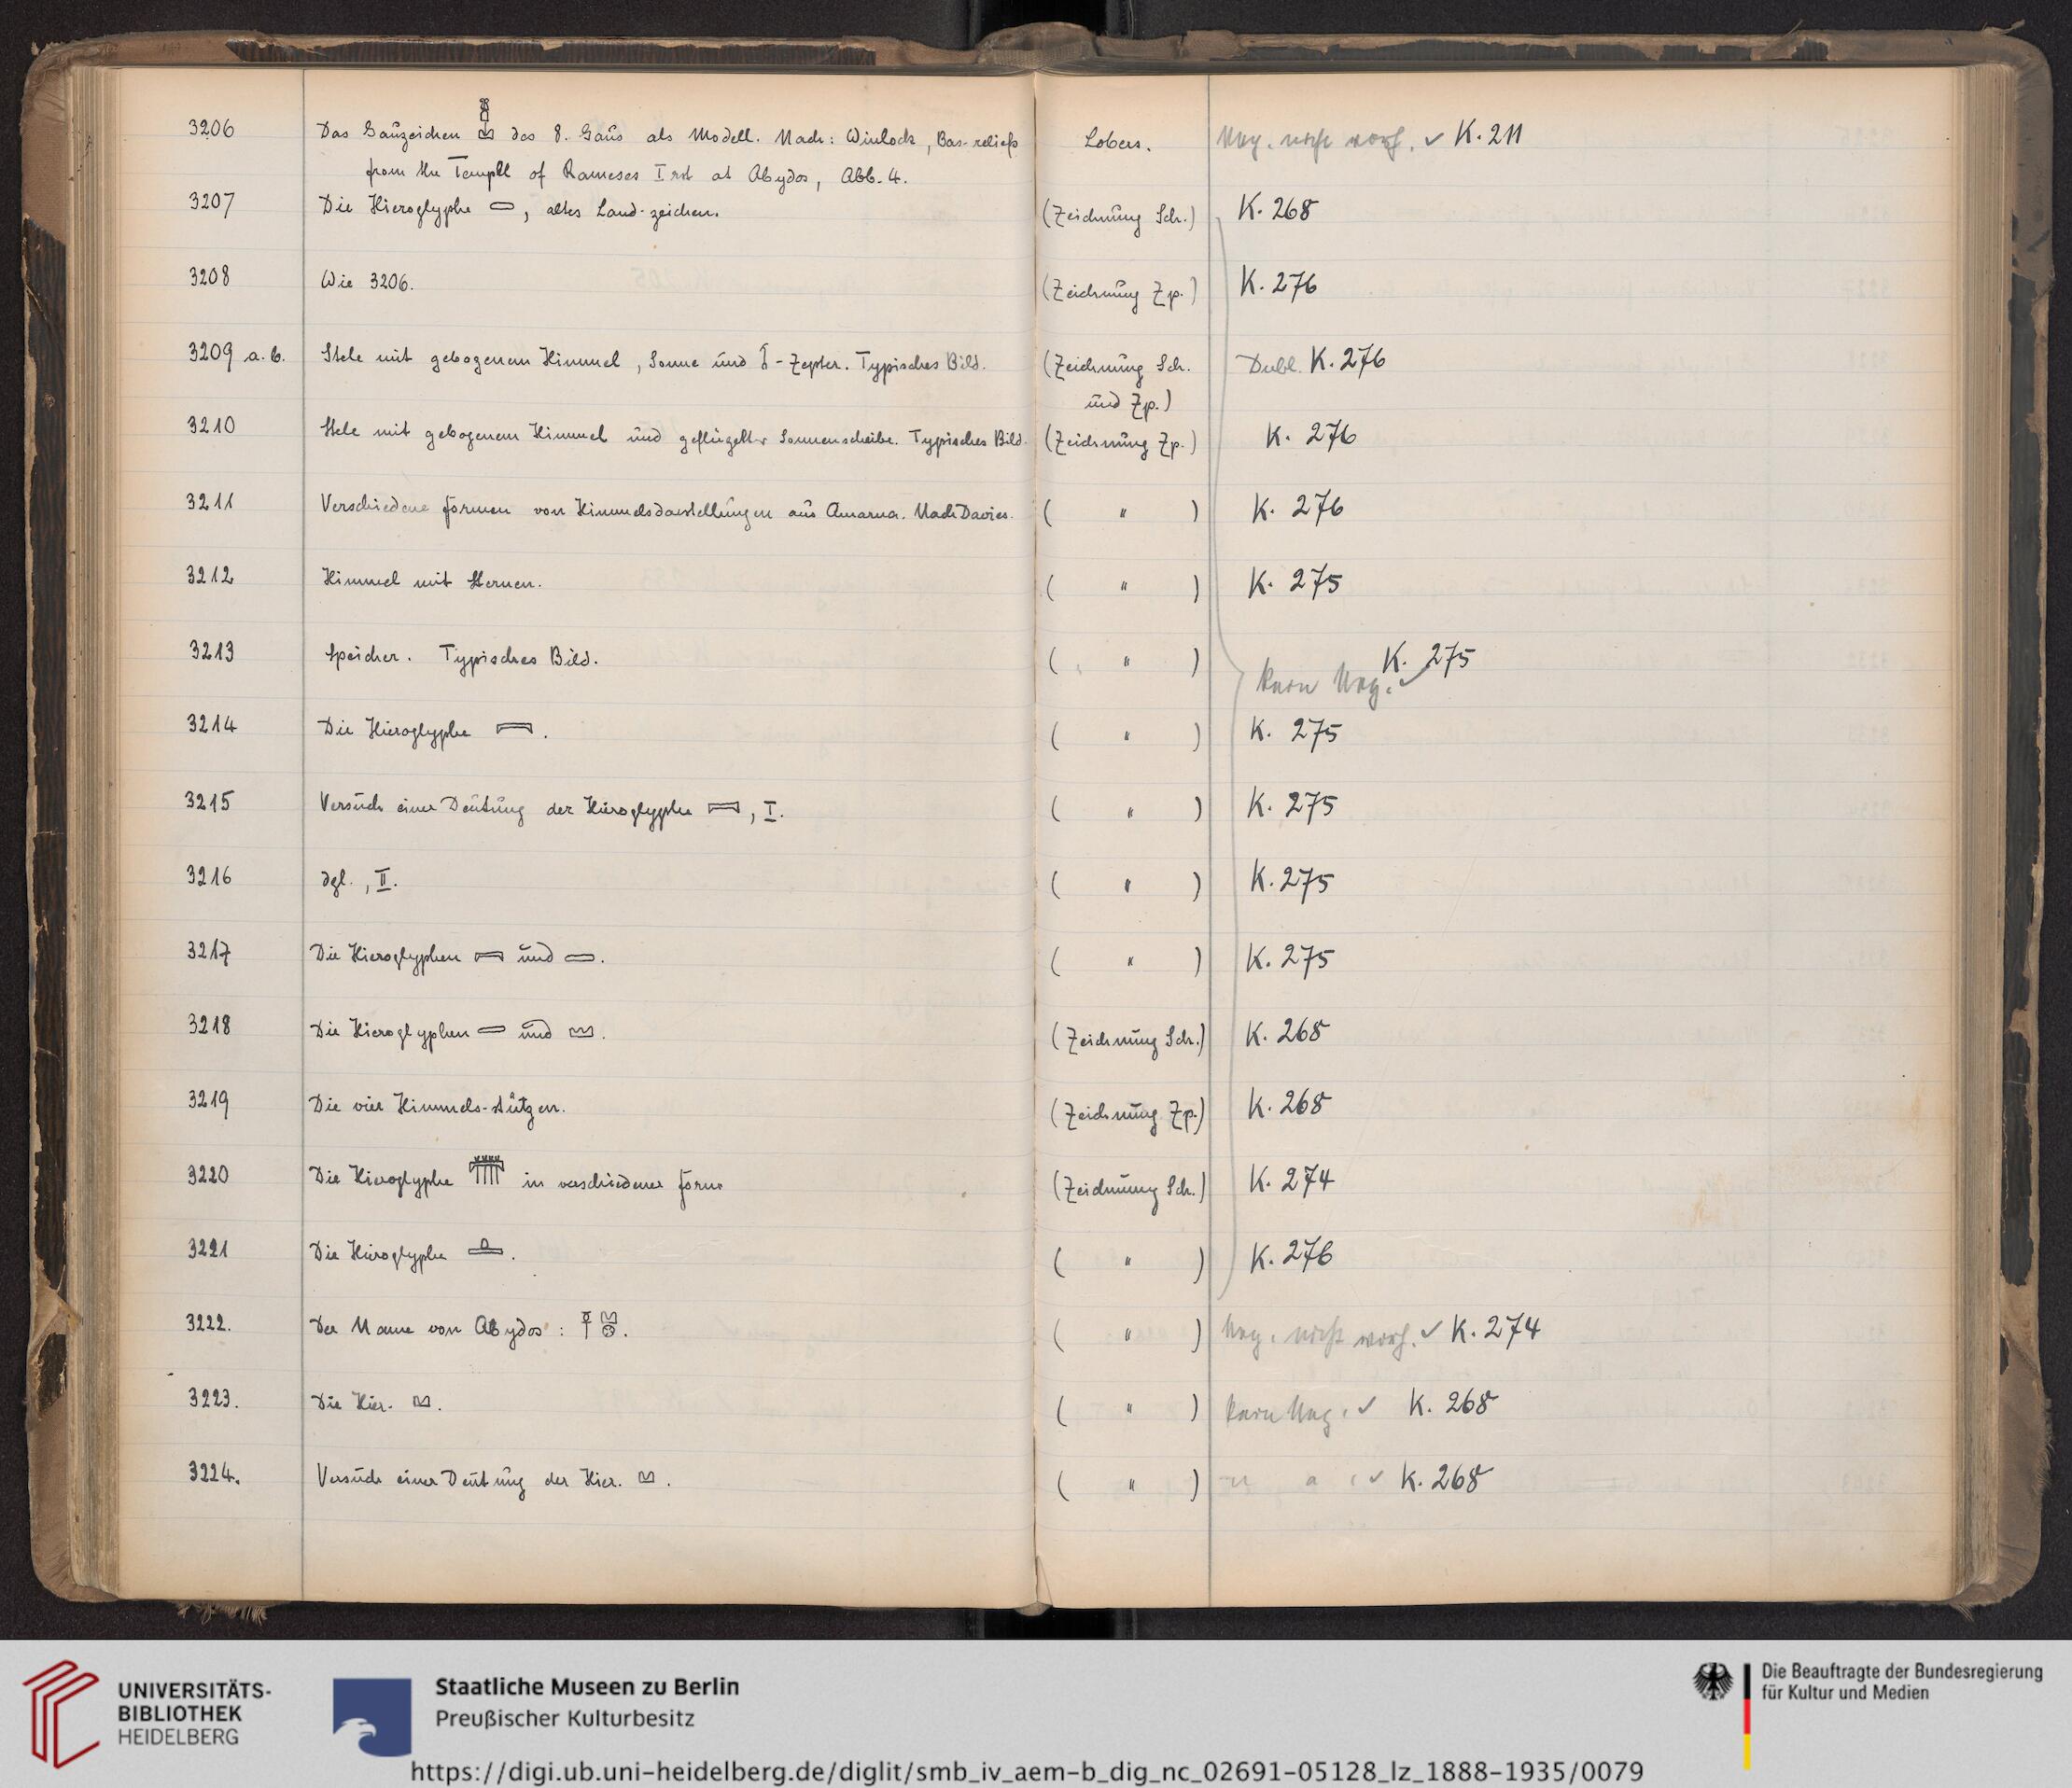 3206 Das Gauzeichen des 8. Gaus als Modell. Nach: Winlock, Bas-reliefs Lobers. Neg. nicht vorh. ✓ K. 211
from the Templl of Rameses Irst at Abydos, Abb. 4.
3207 Die Hieroglyphe , altes Land-zeichen. (Zeichnung Sch.) K. 268
3208 Wie 3206. (Zeichnung Zp.) K. 276
3209 a. b. Stele mit gebogenem Himmel, Sonne und -Zepter. Typisches Bild. (Zeichnung Sch. Dubl. K. 276
und Zp.)
3210 Stele mit gebogenem Himmel und geflügelter Sonnenscheibe. Typisches Bild. (Zeichnung Zp.) K. 276
3211 Verschiedene Formen von Himmelsdarstellungen aus Amarna. Nach Davies. ( " ) K. 276
3212 Himmel mit Sternen. ( " ) K. 275
3213 Speicher. Typisches Bild. ( " ) K. 275
kein Neg. ✓
3214 Die Hieroglyphe . ( " ) K. 275
3215 Versuch einer Deutung der Hieroglyphe , I. ( " ) K. 275
3216 dgl., II. ( " ) K. 275
3217 Die Hieroglyphen und . ( " ) K. 275
3218 Die Hieroglyphen und . (Zeichnung Sch.) K. 268
3219 Die vier Himmels-stützen. (Zeichnung Zp.) K. 268
3220 Die Hieroglyphe in verschiedener Form (Zeichnung Sch.) K. 274
3221 Die Hieroglyphe . ( " ) K. 276
3222. Der Name von Abydos: . ( " ) Neg. nicht vorh. ✓ K. 274
3223. Die Hier. . ( " ) kein Neg. ✓ K. 268
3224. Versuch einer Deutung der Hier. . ( " ) ✓ K. 268
UNIVERSITÄTS-
BIBLIOTHEK
HEIDELBERG
Staatliche Museen zu Berlin
Preußischer Kulturbesitz
Die Beauftragte der Bundesregierung
für Kultur und Medien
https://digi.ub.uni-heidelberg.de/diglit/smb_iv_aem-b_dig_nc_02691-05128_lz_1888-1935/0079